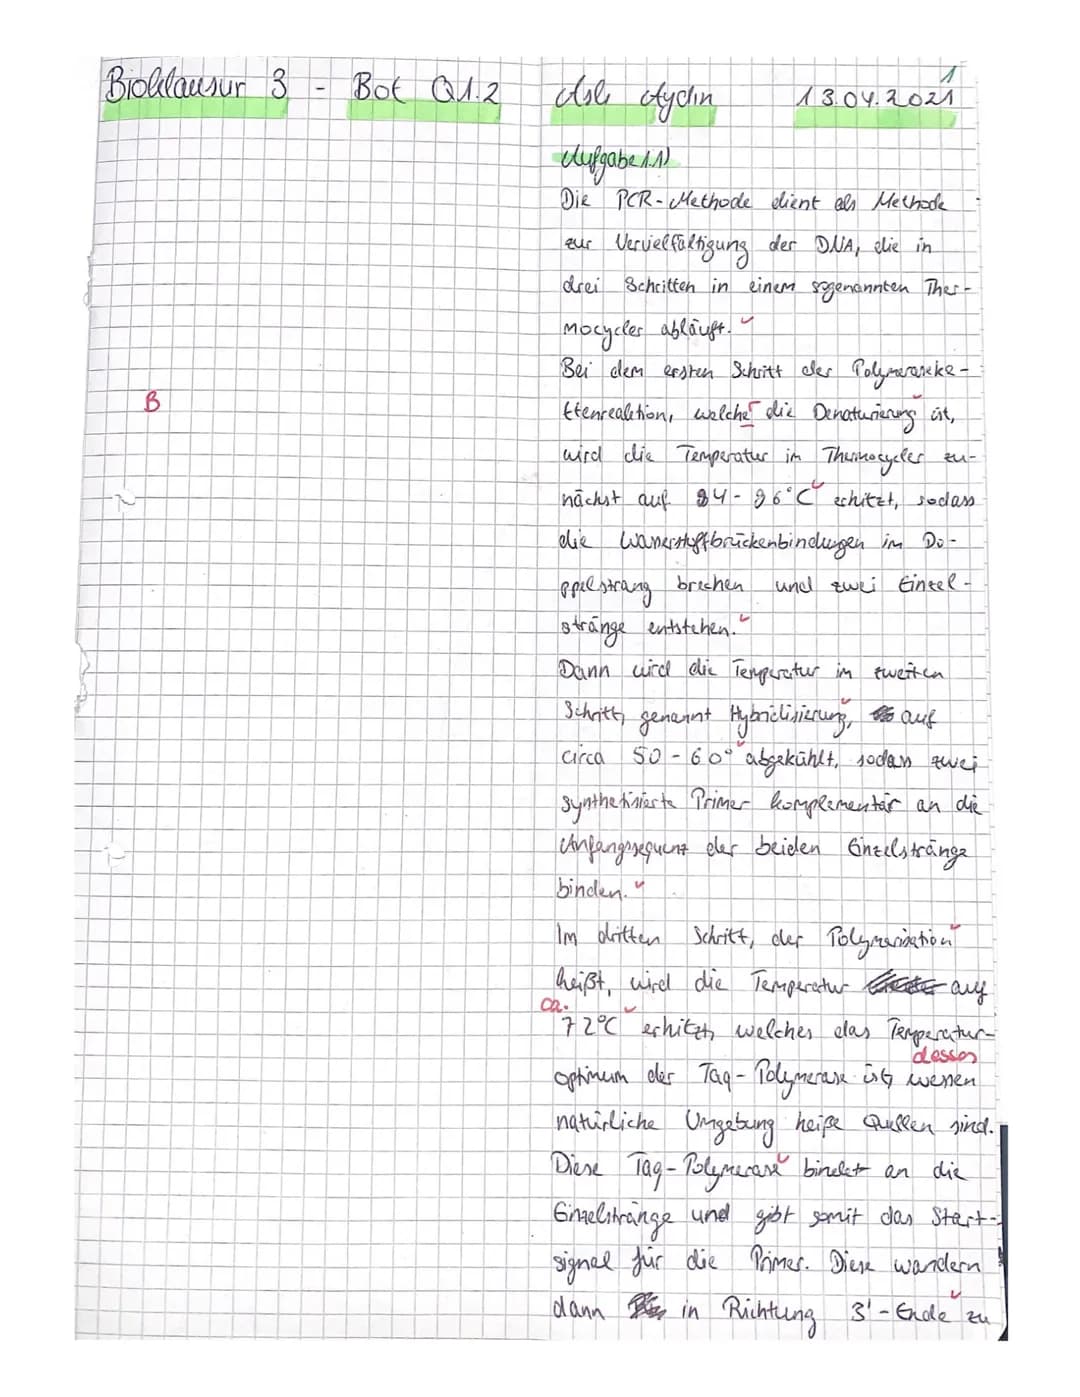 1
Bioklausur 3 - Bot Q1.2 Asli Aydin 13.04.2021
Aufgabe 1.1)
Die PCR-Methode dient als Methode
zur Vervielfältigung der DNA, die in
drei Schritten in einem sogenannten Ther-
mocycler abläuft.
Bei dem ersten Schritt der Polymeraseke-
B
ttenreaktion, welcher die Denaturierung ist,
wird die Temperatur im Thermocycler zu-
nächst auf 94-96°C erhitzt, sodass
die Wasserstoffbrückenbindungen im Do-
ppelstrang brechen und zwei Einzel-
stränge entstehen.
Dann wird die Temperatur im zweiten
Schritt, genannt Hybridisierung, auf
circa 50-60° abgekühlt, sodass zwei
synthetisierte Primer komplementär an die
Anfangssequenz der beiden Einzelstränge
binden.
Im dritten Schritt, der Polymerisation
heißt, wird die Temperatur auf
ca.
72°C erhitzt, welches das Temperatur-
dessen
optimum der Taq-Polymerase ist, wessen
natürliche Umgebung heiße Quellen sind.
Diese Taq-Polymerase bindet an die
Einzelstränge und gibt somit das Start-
signal für die Primer. Diese wandern
dann in Richtung 3'-Ende zu